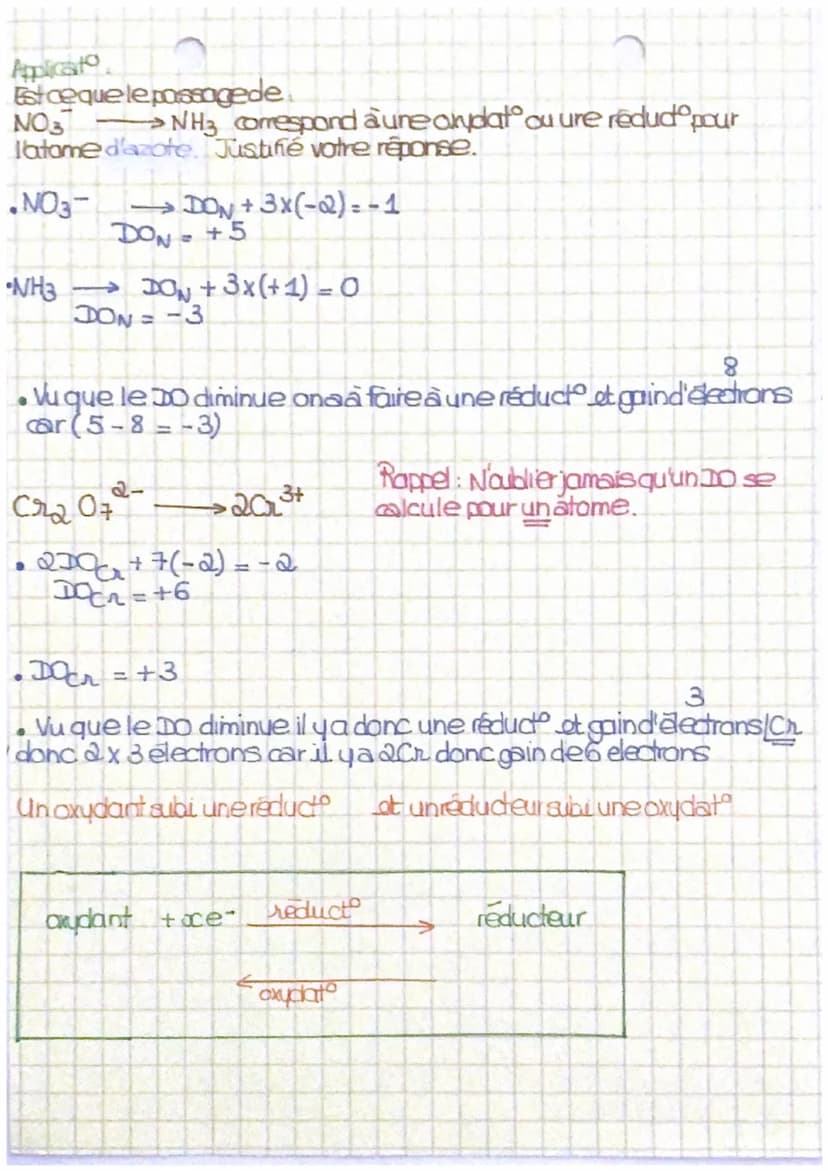 Applicat°.
Est ce que le passage de.
NO3⁻ ⟶ NH3 correspond à une oxydat° ou une réduct° pour
l'atome d'azote. Justifié votre réponse.
• NO3⁻ ⟶ DON + 3x(-2) = -1
DON = +5
• NH3 ⟶ DON + 3x(+1) = 0
DON = -3
8
• Vu que le DO diminue on a à faire à une réduct° et gain d'électrons
car (5 - 8 = -3)
Rappel : N'oublier jamais qu'un DO se
Cr2O7²⁻ ⟶ 2Cr³⁺ calcule pour un atome.
• 2DOCr + 7(-2) = -2
DOCr = +6
• DOCr = +3
3
• Vu que le DO diminue il y a donc une réduct° et gain d'électrons/Cr
donc 2 x 3 électrons car il y a 2Cr donc gain de 6 electrons
Un oxydant subi une réduct° et un réducteur subi une oxydat°
oxydant + xe⁻ réduct° ⟶ réducteur
⟵ oxydat°